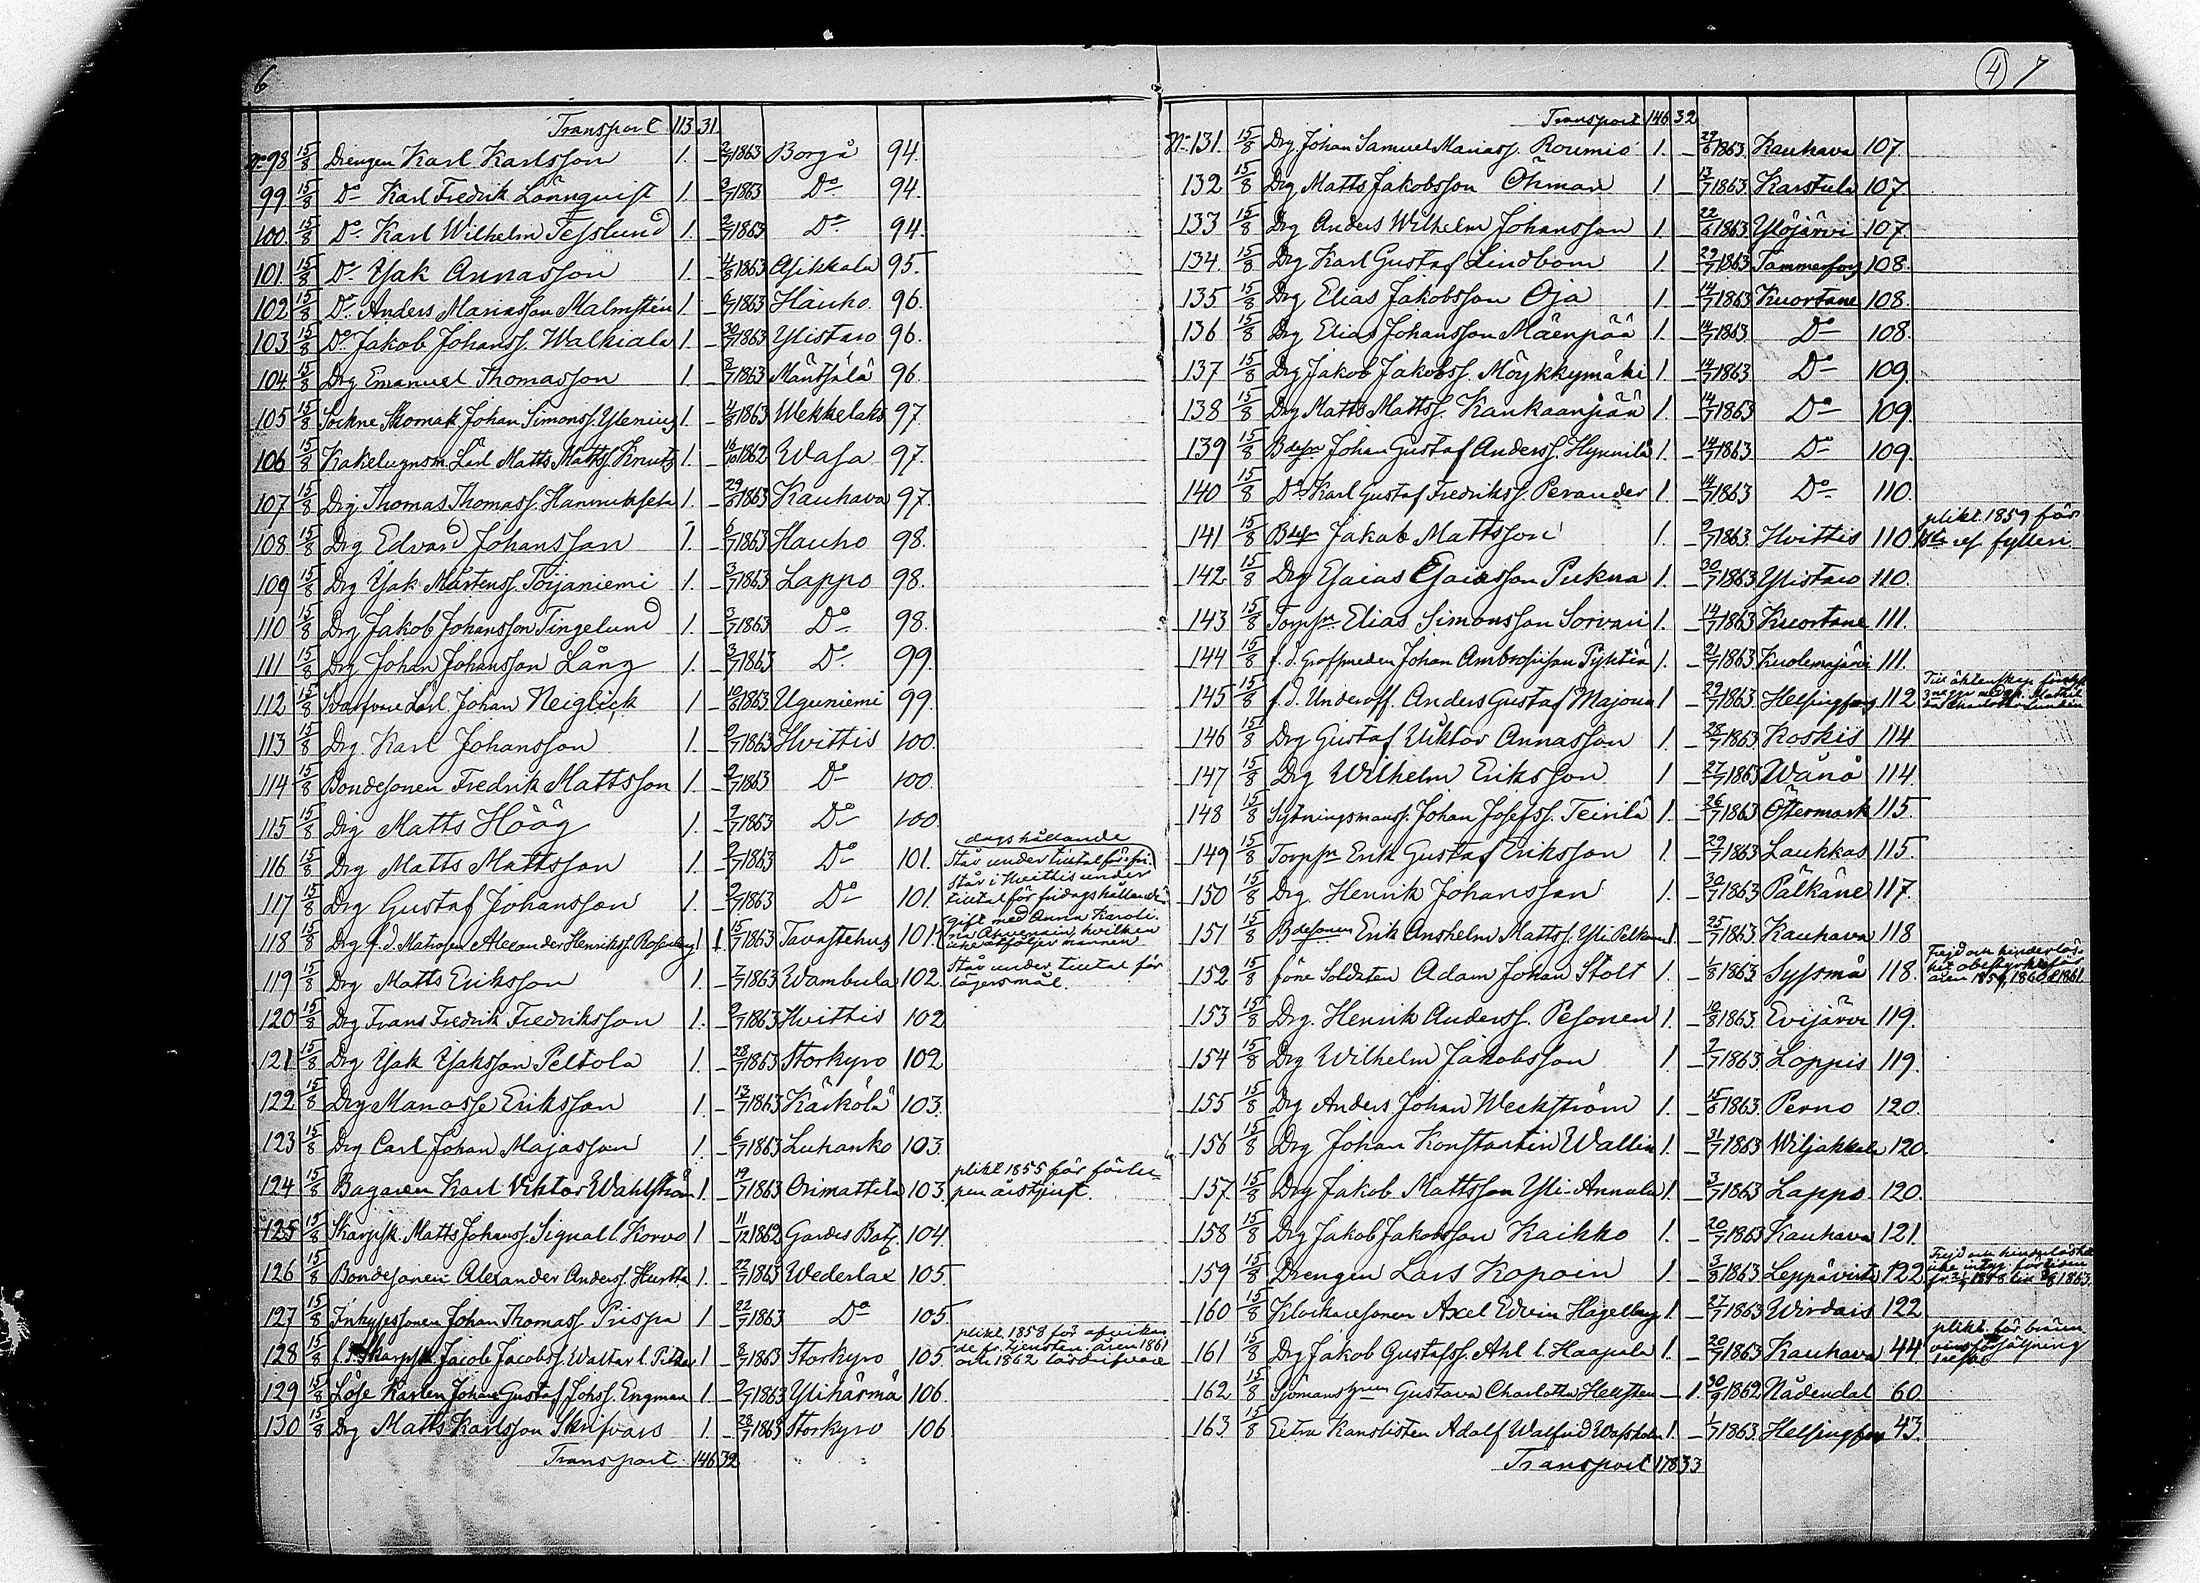 6
Transport 113 31
No 98 15/8 Drengen Karl Karlsson 1. – 2/7 1863 Borgå 94.
99 15/8 Do Karl Fredrik Lönnquist 1. – 2/7 1863 Do 94.
100 15/8 Do Karl Wilhelm Tesslund 1. – 2/7 1863 Do 94.
101 15/8 Do Isak Annasson 1. – 4/8 1863 Asikkala 95.
102 15/8 Do Anders Mariasson Malmstén 1. – 6/7 1863 Hauho 96.
103 15/8 Do Jakob Johanss. Walkiala 1. – 30/7 1863 Ylistaro 96.
104 15/8 Drg Emanuel Thomasson 1. – 8/7 1863 Mäntsälä 96.
105 15/8 Sockne Skomak Johan Simonss. Ylenius 1. – 4/8 1863 Wekkelaks 97.
106 15/8 Kakelugnsm. Lärl Matts Mattss. Knuts 1. – 16/10 1862 Wasa 97.
107 15/8 Drg Thomas Thomass. Hannuksela 1. – 29/6 1863 Kauhava 97.
108 15/8 Drg Edvard Johansson 1. – 6/7 1863 Hauho 98.
109 15/8 Drg Isak Mårtenss. Torjaniemi 1. – 3/7 1863 Lappo 98.
110 15/8 Drg Jakob Johansson Tingelund 1. – 3/7 1863 Do 98.
111 15/8 Drg Johan Johansson Lång 1. – 3/7 1863 Do 99.
112 15/8 Svarfvare Lärl. Johan Neiglick 1. – 10/6 1863 Uguniemi 99.
113 15/8 Drg Karl Johansson 1. – 9/7 1863 Hvittis 100.
114 15/8 Bondesonen Fredrik Mattsson 1. – 9/7 1863 Do 100.
115 15/8 Drg Matts Höög 1. – 9/7 1863 Do 100.
116 15/8 Drg Matts Mattsson 1. – 9/7 1863 Do 101. Står under tiltal för fri-
dagshållande
117 15/8 Drg Gustaf Johansson 1. – 9/7 1863 Do 101. Står i Hvittis under
tiltal för fridagshållande
118 15/8 Drg f.d. Matrosen Alexander Henrikss. Rosenberg 1. 1. 15/7 1863 Tavastehus 101. gift med Anna Karoli-
na, hvilken
icke åtföljer mannen
119 15/8 Drg Matts Eriksson 1. – 7/7 1863 Wambula 102. Står under tiltal för
lägersmål.
120 15/8 Drg Frans Fredrik Fredriksson 1. – 9/7 1863 Hvittis 102
121 15/8 Drg Isak Isaksson Peltola 1. – 28/7 1863 Storkyro 102
122 15/8 Drg Manasse Eriksson 1. – 13/7 1863 Kärkölä 103.
123 15/8 Drg Carl Johan Majasson 1. – 6/7 1863 Luhanko 103.
124 15/8 Bagaren Karl Viktor Wahlström 1. – 19/7 1863 Orimattila 103. plikt 1855 för förlu-
pen årstjenst.
125 15/8 Skarpsk. Matts Johanss. Signal l. Korvo 1 – 11/12 1862 Gardes Bat. 104.
126 15/8 Bondesonen Alexander Anderss. Hurtta 1. – 22/7 1863 Wederlax 105.
127 15/8 Inhysessonen Johan Thomass. Prispa 1 – 22/7 1863 Do 105.
128 15/8 f.d. Skarpsk. Jacob Jacobss. Waltar l. 1 – 8/7 1863 Storkyro 105. plikt. 1858 för afvikan-
de fr. tjensten. åren 1861
och 1862
129 15/8 Löse Karlen Johan Gustaf Johss. Engman 1 – 9/7 1863 Ylihärmä 106.
130 15/8 Drg Matts Karlsson Skrifvars 1. – 28/7 1863 Storkyro 106
Transport. 146 32
4 7
Transport 146 32
No 131. 15/8 Drg Johan Samuel Mariass. Roumio 1. – 29/6 1863. Kauhava 107.
132 15/8 Drg Matts Jakobsson Öhman 1 – 13/7 1863. Karstula 107.
133 15/8 Drg Anders Wilhelm Johansson 1. – 22/6 1863 Ylöjärvi 107.
134. 15/8 Drg Karl Gustaf Lindbom 1. – 29/7 1863 Tammerfors 108.
135 15/8 Drg Elias Jakobsson Oja 1. – 14/7 1863 Kuortane 108.
136 15/8 Drg Elias Johansson Mäenpää 1. – 14/7 1863 Do 108.
137 15/8 Drg Jakob Jakobss. Möykkymäki 1. – 14/7 1863 Do 109.
138 15/8 Drg Matts Mattss. Kankaanpää 1. – 14/7 1863 Do 109.
139 15/8 Bdesn Johan Gustaf Anderss. Hynnilä 1. – 14/7 1863 Do 109.
140 15/8 Do Karl Gustaf Fredrikss. Perander 1. – 14/7 1863 Do 110.
141 15/8 Bdesn Jakob Mattsson 1. – 9/7 1863. Hvittis 110. plikt. 1859 för
1sta res fylleri.
142 15/8 Drg Esaias Esaiasson Pukna 1. – 30/7 1863 Ylistaro 110.
143 15/8 Torpsn Elias Simonsson Sorvari 1. – 14/7 1863 Kuortane 111.
144 15/8 f.d. Grofsmeden Johan Ambrosiison Pyhtiä 1. – 21/7 1863. Kuolemajärvi 111.
145 15/8 f.d. Underoff. Anders Gustaf Majorin 1 – 29/7 1863. Helsingfors 112 Till äktenskap
3 ggr med Mathil-
da Charlotta
146 15/8 Drg Gustaf Viktor Annasson 1. – 28/7 1863 Koskis 114
147 15/8 Drg Wilhelm Eriksson 1 – 27/7 1863 Wånå 114.
148 15/8 Sytningsmanss. Johan Josefss. Teirilä 1. – 26/7 1863 Östermark 115.
149 15/8 Torpsn Erik Gustaf Eriksson 1. – 29/7 1863 Laukkas 115.
150 15/8 Drg. Henrik Johansson 1. – 30/7 1863 Pälkäne 117.
151 15/8 Bdesonen Erik Anshelm Mattss. Yli Pelkonen 1. – 25/7 1863. Kauhava 118
152 15/8 förre Soldaten Adam Johan Stolt 1. – 1/8 1863. Syssmä 118. Frejd och hinderlös-
het obestyrkt för
åren 1859, 1860 & 1861.
153 15/8 Drg. Henrik Anderss. Pesonen 1. – 10/8 1863. Evijärvi 119.
154 15/8 Drg Wilhelm Jakobsson 1. – 2/7 1863. Loppis 119.
155 15/8 Drg Anders Johan Weckström 1. – 15/6 1863. Perno 120.
156 15/8 Drg Johan Konstantin Wallin 1. – 31/7 1863 Wiljakkala 120.
157. 15/8 Drg Jakob Mattsson Yli-Annala 1. – 3/7 1863 Lappo 120.
158 15/8 Drg Jakob Jakobsson Kaikko 1. – 20/7 1863 Kauhava 121.
159 15/8 Drengen Lars Kopoin 1. – 3/8 1863 Leppävirta 122 Frejd och hinderlöshet
icke intyg. för tiden
fr. 1858 till 1863.
160 15/8 Klockaresonen Axel Edvin Hagelberg 1. – 27/7 1863 Wirdois 122
161 15/8 Drg Jakob Gustafss. Ahl l. Haapala 1. – 20/7 1863 Kauhava 44 plikt. för bränn-
vinsförsäljning
162 15/8 Sjömanshun Gustava Charlotta Hellsten – 1. 30/9 1862 Nådendal 60.
163 15/8 Extra Kanslisten Adolf Walfrid Wassholm 1. – 1/7 1863. Helsingfors 43.
Transport 178 33